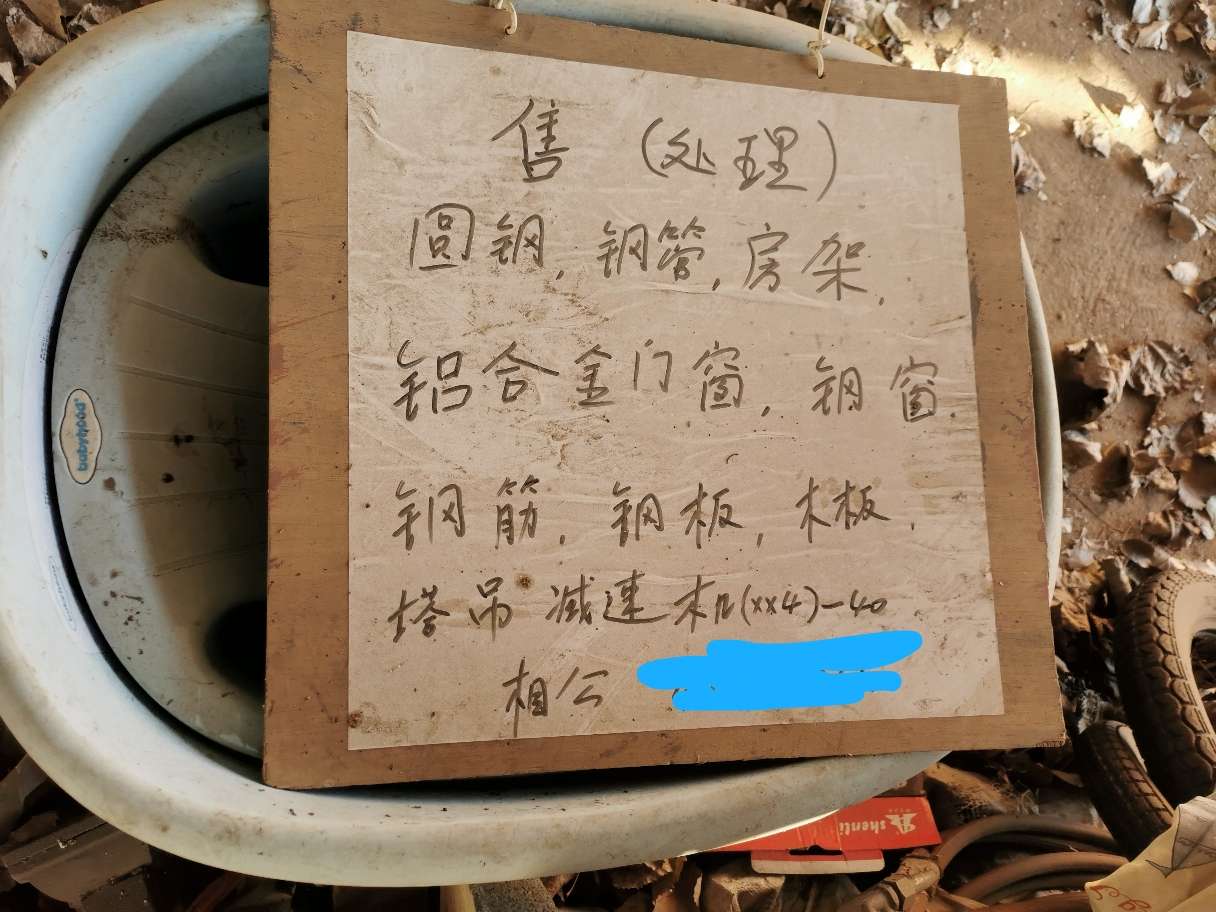 售（处理）
圆钢，钢管，房架，
铝合金门窗，钢窗，
钢筋，钢板，木板，
塔吊减速机(xx4)-40
相公
babyhood
shenli